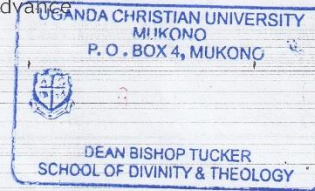 dvance
UGANDA CHRISTIAN UNIVERSITY
MUKONO
P.O. BOX 4, MUKONO
DEAN BISHOP TUCKER
SCHOOL OF DIVINITY & THEOLOGY